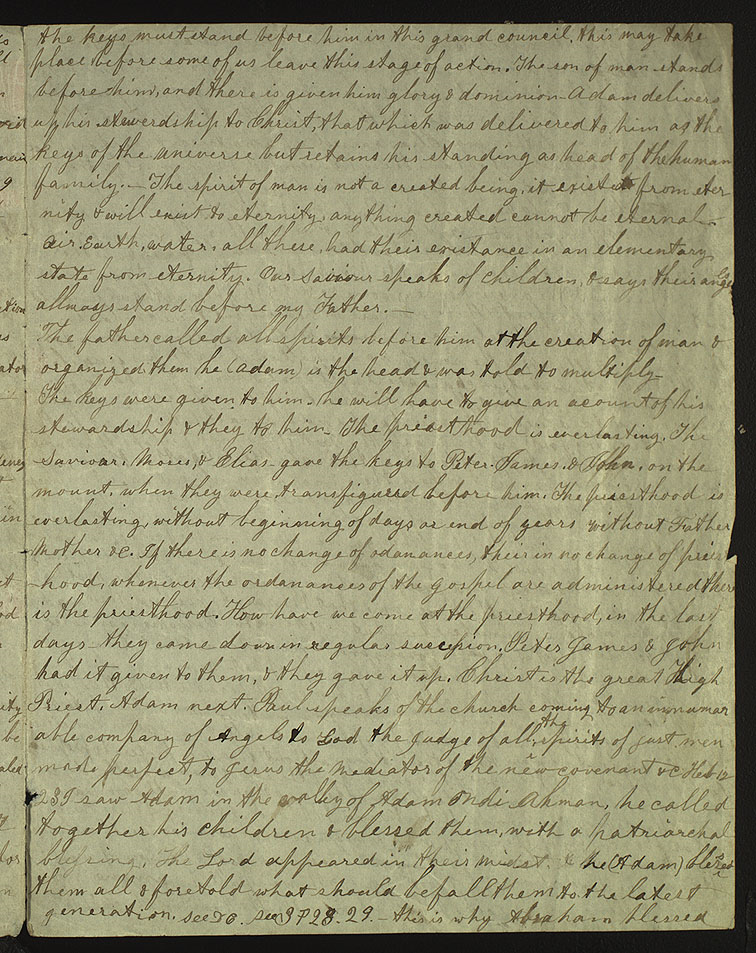 the keys must stand before him in this grand council. this may take
place before some of us leave this stage of action. The son of man stands
before him, and there is given him glory & dominion - Adam delivers
up his stewerdship to Christ, that which was delivered to him as the
keys of the universe but retains his standing as head of the human
family. — The spirit of man is not a created being, it existed from eter
nity & will exist to eternity, anything created cannot be eternal -
air. Earth, water, all these, had their existance in an elementary
state from eternity. Our Saviour speaks of Children, & says their angels
allways stand before my Father. —
The father called all spirits before him at the creation of man &
organized them he (Adam) is the head & was told to multiply -
The keys were given to him. he will have to give an acount of his
stewardship & they to him - The priesthood is everlasting. The
Saviour. Moses, & Elias - gave the keys to Peter. James. & John. on the
mount. when they were transfigured before him. The priesthood is
everlasting, without beginning of days or end of years without Father
Mother &c. If there is no change of odanances, their in no change of pries
-hood, whenever the ordanances of the Gospel are administered there
is the priesthood. How have we come at the priesthood, in the last
days - they came down in regular succepion. Peter James & John
had it given to them, & they gave it up. Christ is the great High
Priest. Adam next. Paul speaks of the church coming to an innumar
able company of Angels to God the Judge of all, the spirits of Just men
made perfect, to Jesus the Mediator of the new covenant &c Heb 12
23 I saw Adam in the valley of Adam Ondi Ahman, he called
together his children & blessed them, with a patriarchal
blessing. The Lord appeared in their midst & he (Adam) blessed
them all & foretold what should befall them to the latest
generation. see DC. sec 3 P 28. 29. - this is why Abraham blessed